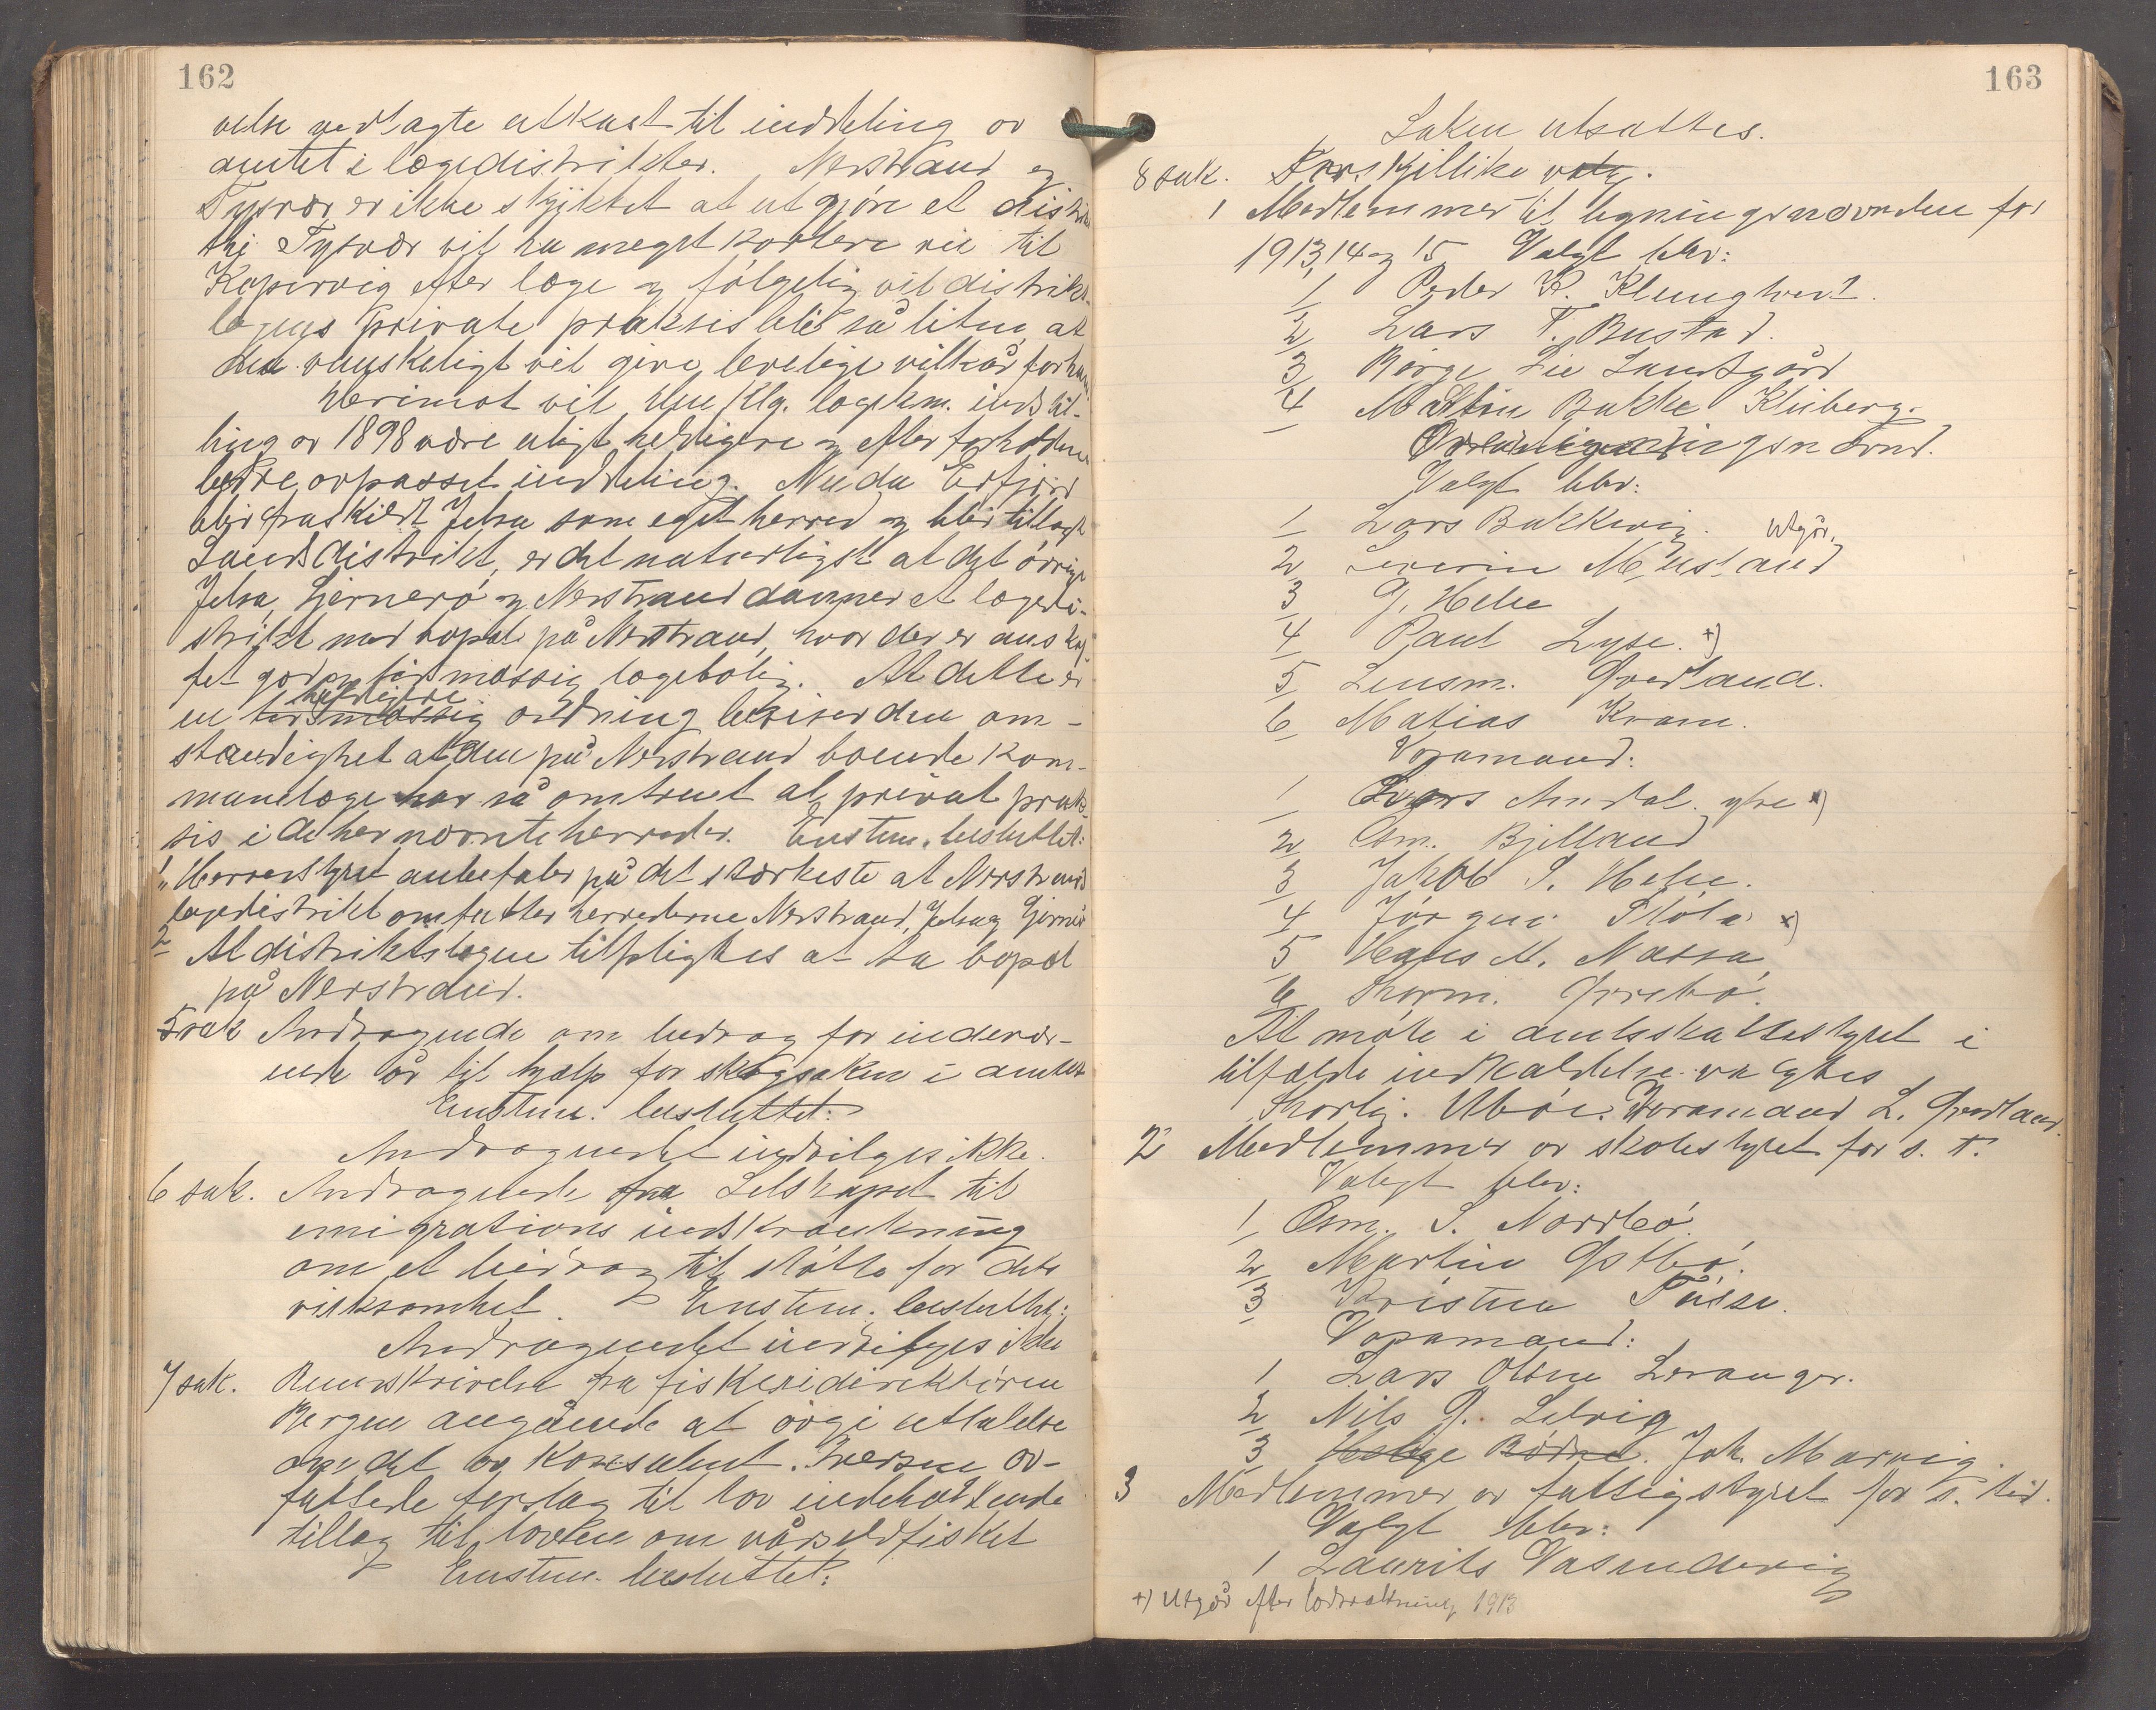 162
velse vedlagte utkast til inddeling av
amtet i lægedistrikter. Nerstrand og
Tysvær er ikke skikket at utgjøre et distrikt
thi Tysvær vil ha meget kortere vei til
Kopervig efter læge og følgelig vil distrikts-
lægens private praksis bli så liten, at
den vanskeligt vil give levelige vilkår for ham.
Herimot vil lægekom. indstil-
ling av 1898 være uligt heldigere og efter forholdene
bedre avpasset inddeling. Nu da Erfjord
blir fraskildt Jelsa som eget herred og blir tillagt
Sands distrikt, er det naturligst at det øvrige
Jelsa, Sjernerö og Nerstrand danner et lægedi-
strikt med bopæl på Nerstrand, hvor der er anskaf-
fet god og tidsmæssig lægebolig. At dette er
heldigere
en tidsmæssig ordning beviser den om-
stændighet at den på Nerstrand boende kom-
munelæge har så omtrent al privat prak-
sis i de her nævnte herreder. Enstem. besluttet:
1 "Herredstyret anbefaler på det stærkeste at Nerstrand
lægedistrikt omfatter herrederne Nerstrand, Jelsa og Sjernerö
2 At distriktslægen tilpligtes at ta bopæl
på Nerstrand.
5 sak Andragende om bidrag for indevær-
ende år til hjælp for skogsaken i amtet
Enstem. besluttet:
Andragendet indvilges ikke.
6 sak. Andragende fra Selskapet til
emigrations indskrænkning
om et bidrag til støtte for dets
virksomhet. Enstem. besluttet:
Andragendet indvilges ikke
7 sak. Rundskrivelse fra fiskeridirektören
Bergen angående at avgi uttalelse
om det av konsulent Iversen av-
fattede forslag til lov indeholdende
tillæg til loven om vårsildfisket
Enstem. besluttet:
163
Saken utsattes.
8 sak. Forskjellike valg.
1 Medlemmer til ligningsnævnden for
1913, 14 og 15 Valgt blev:
1 Peder K. Klungtvedt.
2 Lars T. Bustad.
3 Börge Lie Landsgård
4 Martin Bakke Kliberg.
Valgt blev:
1 Lars Bakkevig. utgår.
2 Severin
3 G. Hebe
4 Paul Lyse. +)
5 Lensm. Gredland.
6 Matias Kram.
Varamænd:
1 Lars Amdal ytre x)
2 Osm. Bjelland
3 Jakob S. Hebe.
4 Jörgen Stöle x)
5 Hans M. Nassa
6
At møte i amtsskattestyret i
tilfælde indkaldelse valgtes
Varamand L. Gredland.
2 Medlemmer av skolestyret for s. t.
Valgt blev:
1 Osm. S. Nordbö.
2 Martin Östbö.
3 Kristen
Varamænd:
1 Lars Olsen Leranger.
2 Nils G. Selvig
3 Helge Bødne. Joh. Marvig
3 Medlemmer av fattigstyret for s. tid.
Valgt blev:
1 Laurits Vasendevig
+) utgår efter lodtrækning 1913